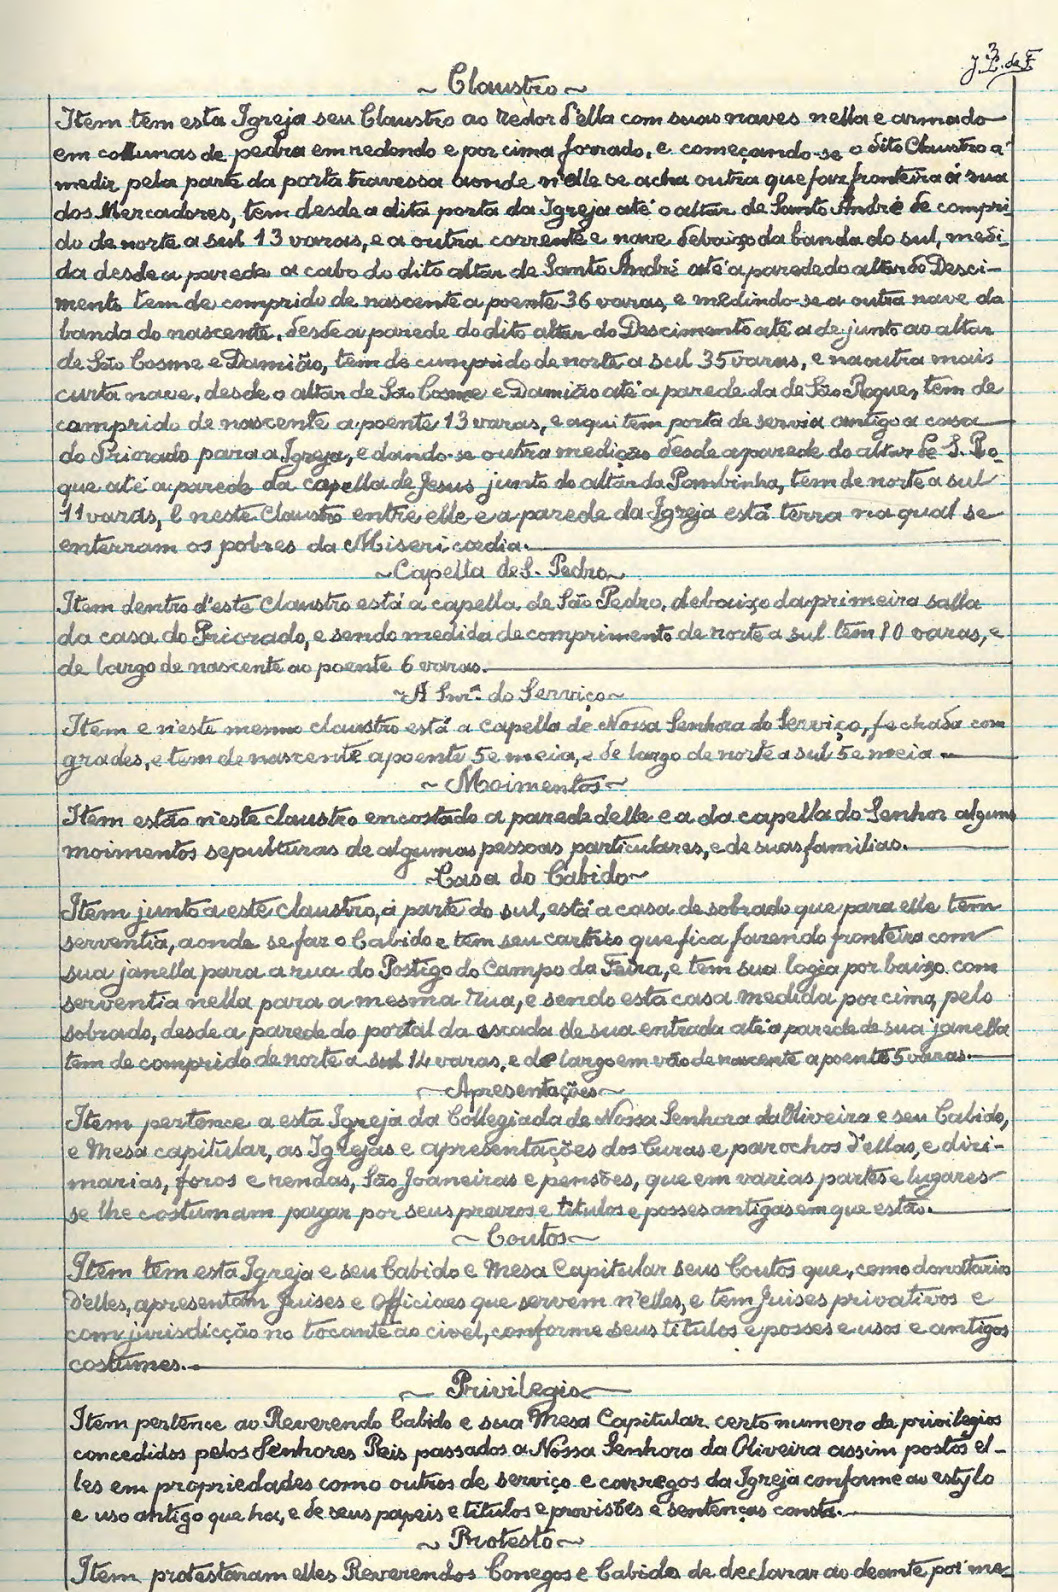 3
J. L. de F.
~ Claustro ~
Item tem esta Igreja seu Claustro ao redor d'ella com suas naves nella e armado
em collunas de pedra em redondo e por cima forrado, e começando-se o dito Claustro a
medir pela parte da porta travessa aonde n'elle se acha outra que faz fronteira á rua
dos Mercadores, tem desde a dita porta da Igreja até o altar de Santo André de compri-
do de norte a sul 13 varas, e a outra corrente e nave debaixo da banda do sul, medi-
da desde a parede a cabo do dito altar de Santo André até a parede do altar do Desci-
mento tem de comprido de nascente a poente 36 varas, e medindo-se a outra nave da
banda do nascente, desde a parede do dito altar do Descimento até a de junto ao altar
de São Cosme e Damião, tem de cumprido de norte a sul 35 varas, e na outra mais
curta nave, desde o altar de São Cosme e Damião até a parede da de São Roque, tem de
comprido de nascente a poente 13 varas, e aqui tem porta de servia antigo a casa
do Priorado para a Igreja, e dando-se outra medição desde a parede do altar de S. Ro-
que até a parede da capella de Jesus junto do altar da Pombinha, tem de norte a sul
11 varas, E neste Claustro entre elle e a parede da Igreja está terra na qual se
enterram os pobres da Misericordia.
~ Capella de S. Pedro ~
Item dentro d'este Claustro está a capella de São Pedro, debaixo da primeira salla
da casa do Priorado, e sendo medida de comprimento de norte a sul tem 10 varas, e
de largo de nascente ao poente 6 varas.
~ A Snrª. do Serviço ~
Item e n'este mesmo claustro está a capella de Nossa Senhora do Serviço, fechada com
grades, e tem de nascente a poente 5 e meia, e de largo de norte a sul 5 e meia.
~ Moimentos ~
Item estão n'este claustro encostado a parede delle e a da capella do Senhor alguns
moimentos sepulturas de algumas pessoas particulares, e de suas familias.
~ Casa do Cabido ~
Item junto a este claustro, á parte do sul, está a casa de sobrado que para elle tem
serventia, aonde se faz o Cabido e tem seu cartorio que fica fazendo fronteira com
sua janella para a rua do Postigo do Campo da Feira, e tem sua logea por baixo com
serventia nella para a mesma rua, e sendo esta casa medida por cima, pelo
sobrado, desde a parede do portal da escada de sua entrada até a parede de sua janella
tem de comprido de norte a sul 14 varas, e de largo em vão de nascente a poente 5 varas.
~ Apresentações ~
Item pertence a esta Igreja da Collegiada de Nossa Senhora da Oliveira e seu Cabido,
e Mesa capitular, as Igrejas e apresentações dos Curas e parochos d'ellas, e dizi-
marias, foros e rendas, São Joaneiras e pensões, que em varias partes e lugares
se lhe costumam pagar por seus prazos e titulos e posses antigas em que estão.
~ Coutos ~
Item tem esta Igreja e seu Cabido e Mesa Capitular seus Coutos que, como donatarios
d'elles, apresentam Juises e Officiaes que servem n'elles, e tem Juises privativos e
com jurisdicção no tocante ao civel, conforme seus titulos e posses e usos e antigos
costumes.
~ Privilegio ~
Item pertence ao Reverendo Cabido e sua Mesa Capitular certo numero de privilegios
concedidos pelos Senhores Reis passados a Nossa Senhora da Oliveira assim postos el-
les em propriedades como outros de serviço e carregos da Igreja conforme ao estylo
e uso antigo que ha, e de seus papeis e titulos e provisões e sentenças consta.
~ Protesto ~
Item protestaram elles Reverendos Conegos e Cabido de declarar ao deante por me-